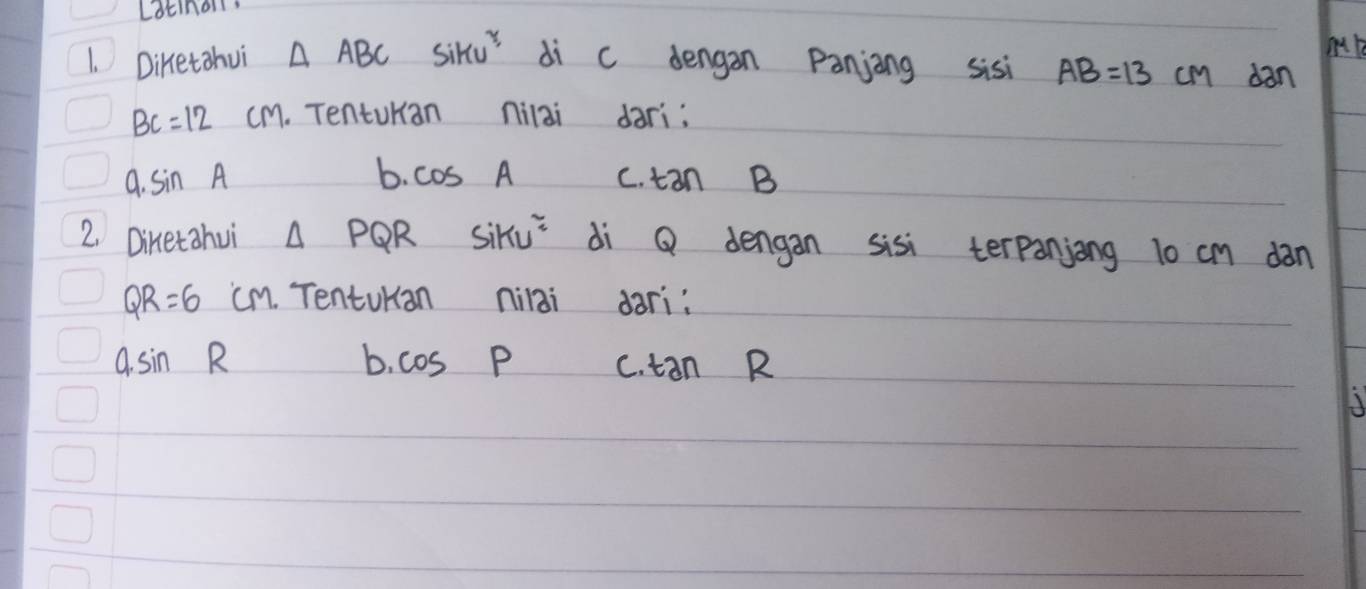 Latihan.
1. Diketahui Δ ABC siku² di C dengan Panjang sisi AB=13 cm dan
BC=12 cm. Tentukan nilai dari:
a. sin A b. cos A c. tan B
2. Diketahui Δ PQR siku² di Q dengan sisi terpanjang 10 cm dan
QR=6 cm. Tentukan nilai dari:
a. sin R b. cos P c. tan R